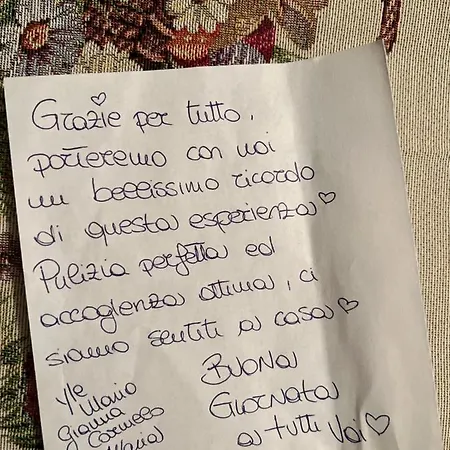 Grazie per tutto,
porteremo con noi
un bellissimo ricordo
di questa esperienza♡
Pulizia perfetta ed
accoglienza ottima, ci
siamo sentiti a casa♡
Yle
Mario
Gianna
Carmelo
Maria
Buona
Giornata
a tutti Voi♡